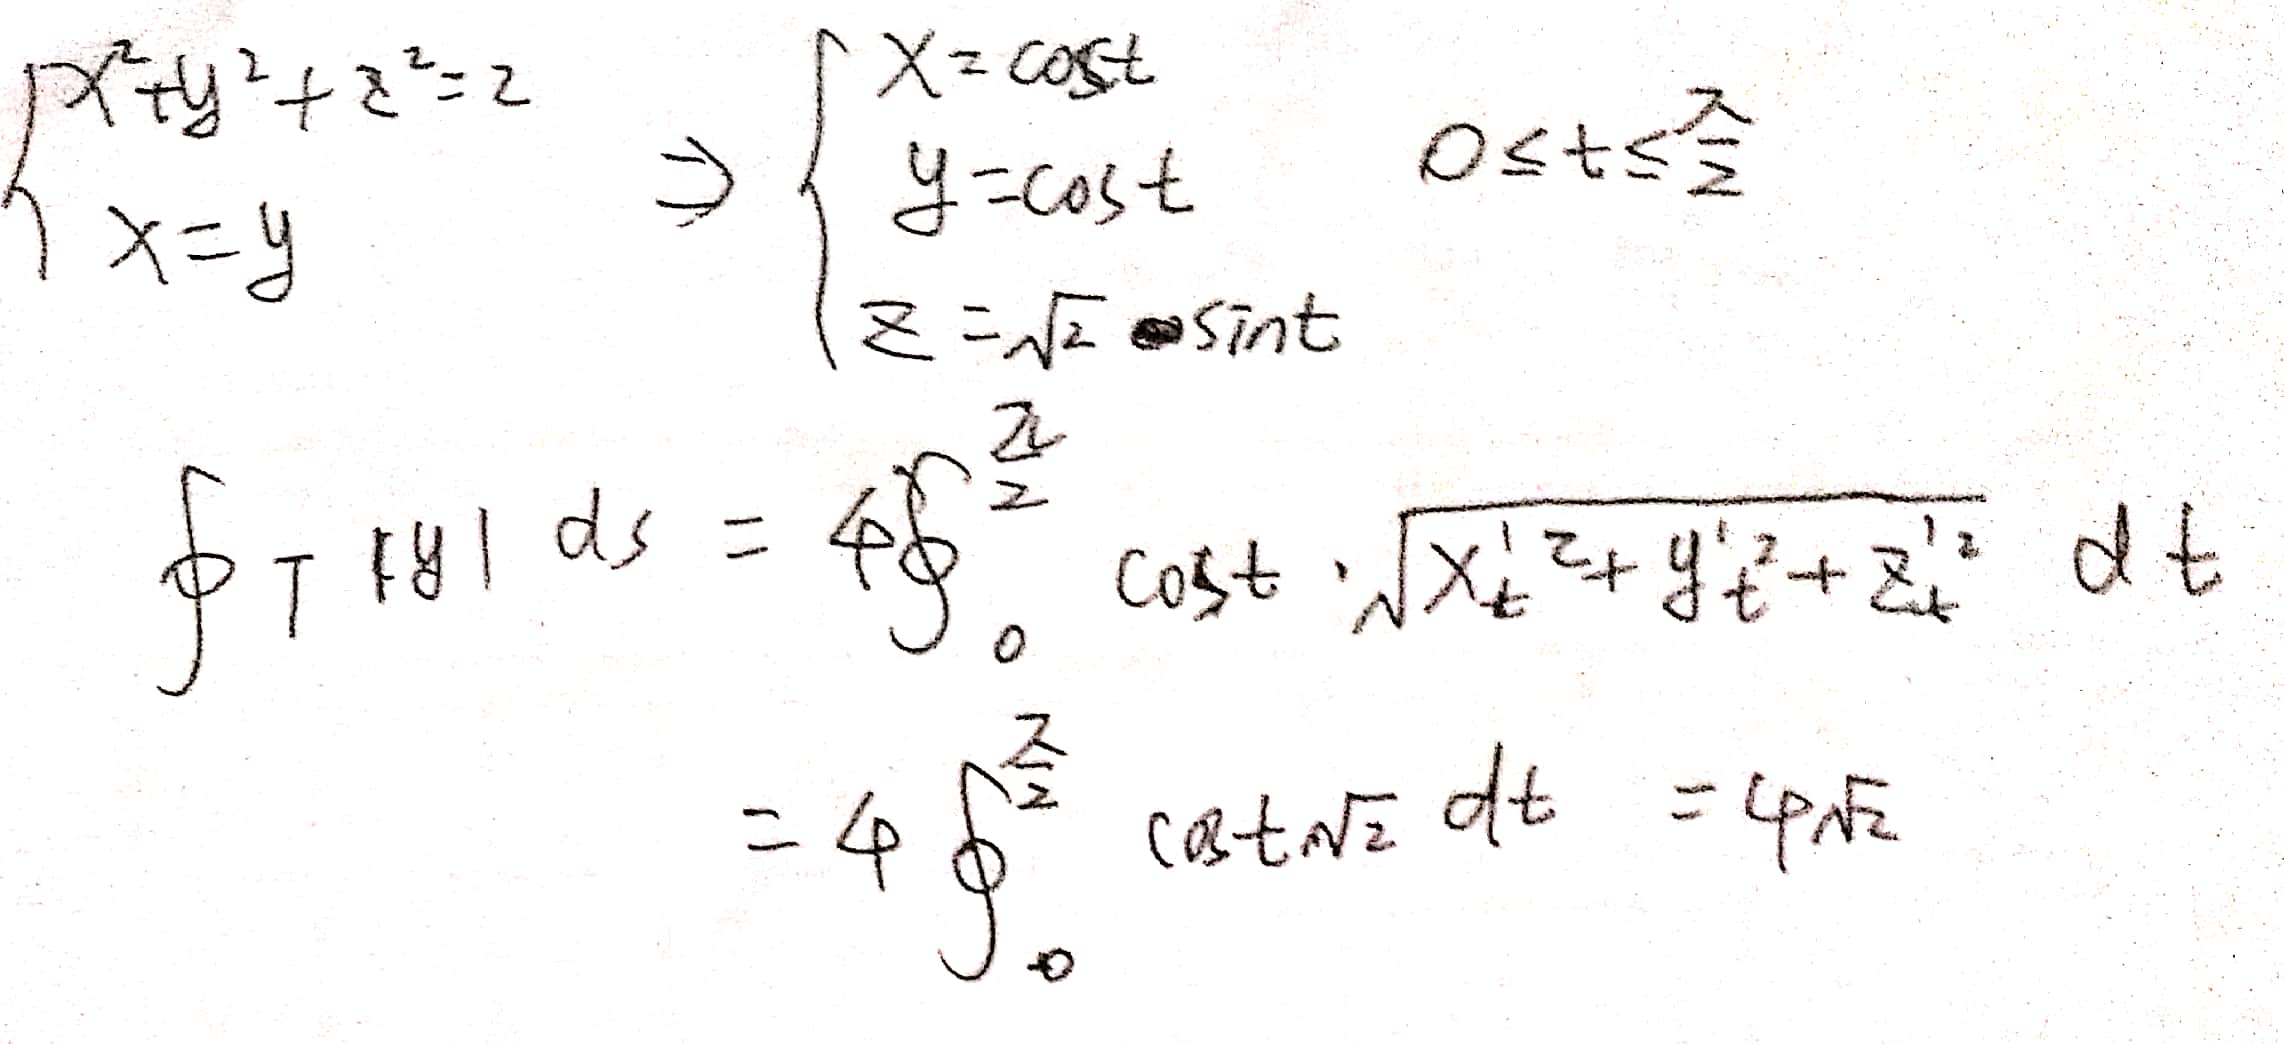 { x²+y²+z²=2
x=y
⇒ { x=cost
y=cost
z=√2 sint
0≤t≤π/2
∮_T |y| ds = 4∮_0^{π/2} cost·√(x'_t²+y'_t²+z'_t²) dt
= 4∮_0^{π/2} cost√2 dt = 4√2